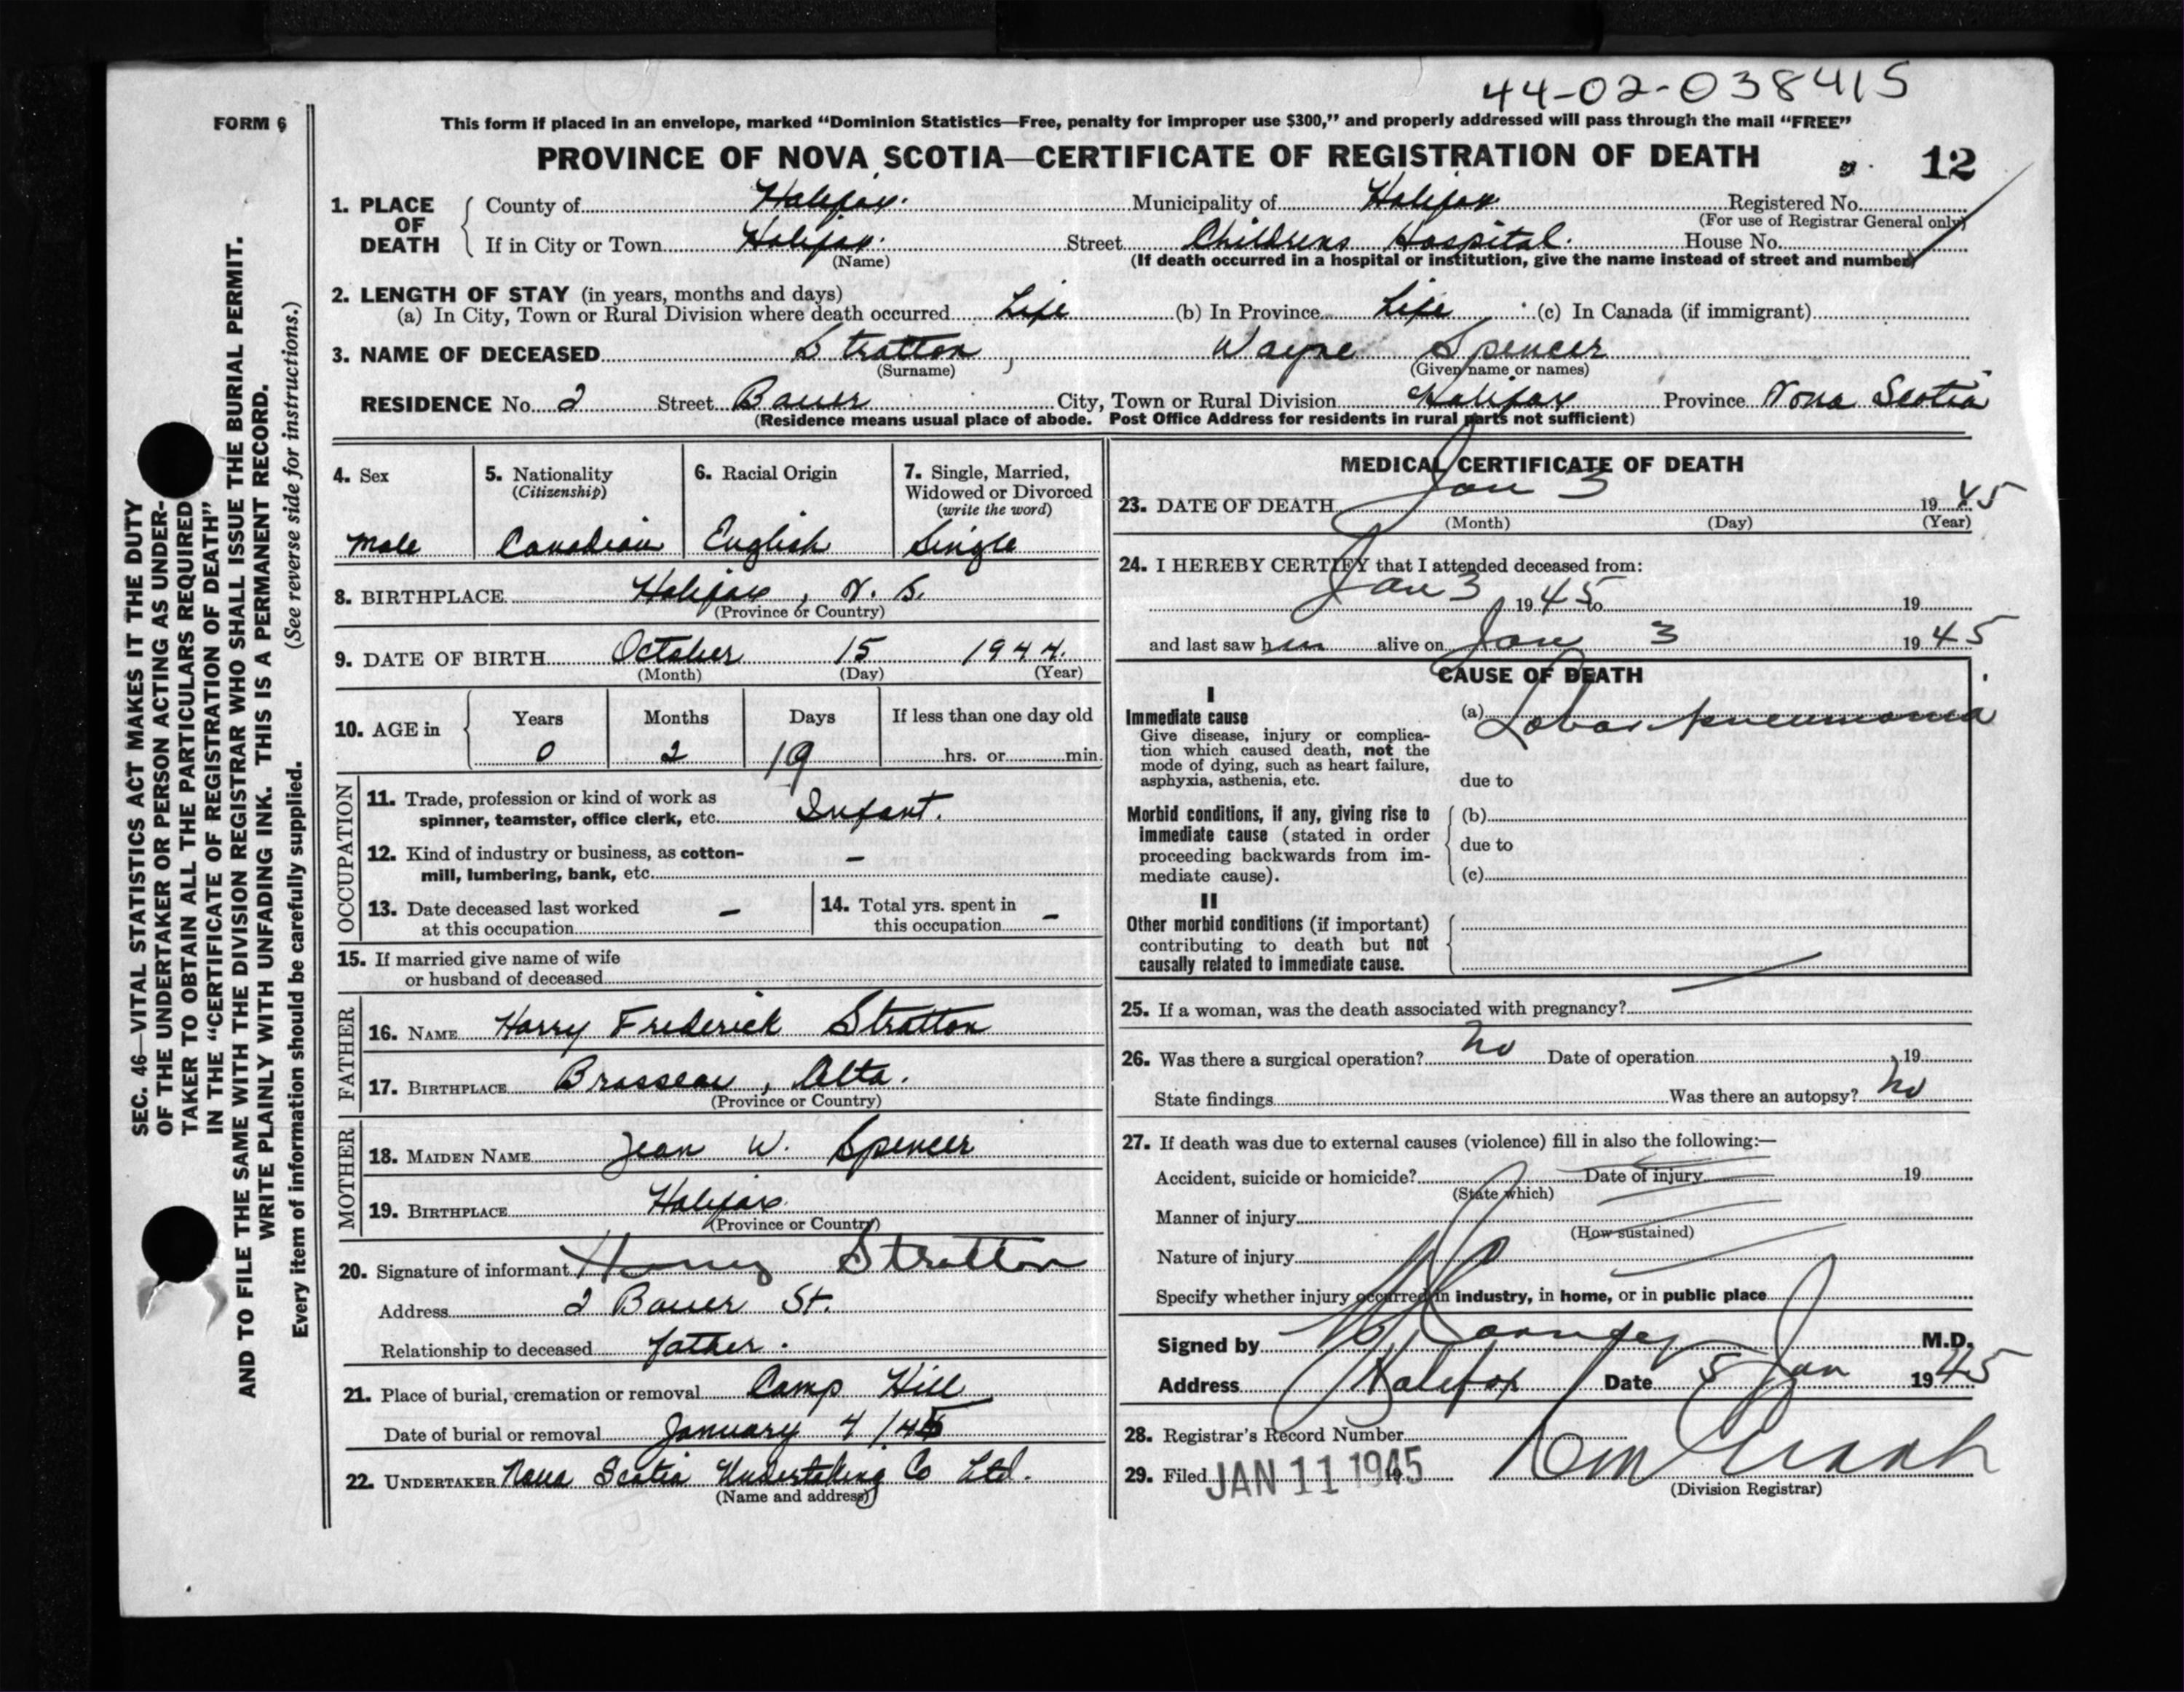 44-02-038415
FORM 6
This form if placed in an envelope, marked “Dominion Statistics—Free, penalty for improper use $300,” and properly addressed will pass through the mail “FREE”
PROVINCE OF NOVA SCOTIA—CERTIFICATE OF REGISTRATION OF DEATH
12
1. PLACE OF DEATH
County of Halifax. Municipality of Halifax Registered No.
(For use of Registrar General only)
If in City or Town Halifax. Street Childrens Hospital. House No.
(Name) (If death occurred in a hospital or institution, give the name instead of street and number)
2. LENGTH OF STAY (in years, months and days)
(a) In City, Town or Rural Division where death occurred Life (b) In Province Life (c) In Canada (if immigrant)
3. NAME OF DECEASED Stratton, Wayne Spencer
(Surname) (Given name or names)
RESIDENCE No. 2 Street Bauer City, Town or Rural Division Halifax Province Nova Scotia
(Residence means usual place of abode. Post Office Address for residents in rural parts not sufficient)
4. Sex 5. Nationality (Citizenship) 6. Racial Origin 7. Single, Married, Widowed or Divorced (write the word)
Male Canadian English Single
8. BIRTHPLACE Halifax, N. S.
(Province or Country)
9. DATE OF BIRTH October 15 1944.
(Month) (Day) (Year)
10. AGE in Years Months Days If less than one day old
0 2 19 hrs. or min.
OCCUPATION
11. Trade, profession or kind of work as
spinner, teamster, office clerk, etc. Infant.
12. Kind of industry or business, as cotton-
mill, lumbering, bank, etc. –
13. Date deceased last worked
at this occupation –
14. Total yrs. spent in
this occupation –
15. If married give name of wife
or husband of deceased
FATHER
16. NAME Harry Frederick Stratton
17. BIRTHPLACE Brosseau, Alta.
(Province or Country)
MOTHER
18. MAIDEN NAME Jean W. Spencer
19. BIRTHPLACE Halifax
(Province or Country)
20. Signature of informant Harry Stratton
Address 2 Bauer St.
Relationship to deceased father.
21. Place of burial, cremation or removal Camp Hill
Date of burial or removal January 4/45
22. UNDERTAKER Nova Scotia Undertaking Co Ltd.
(Name and address)
MEDICAL CERTIFICATE OF DEATH
23. DATE OF DEATH Jan 3 1945
(Month) (Day) (Year)
24. I HEREBY CERTIFY that I attended deceased from:
Jan 3 1945 to 19
and last saw him alive on Jan 3 1945
CAUSE OF DEATH
I
Immediate cause
Give disease, injury or complica-
tion which caused death, not the
mode of dying, such as heart failure,
asphyxia, asthenia, etc.
(a) Lobar pneumonia
due to
Morbid conditions, if any, giving rise to
immediate cause (stated in order
proceeding backwards from im-
mediate cause).
(b)
due to
(c)
II
Other morbid conditions (if important)
contributing to death but not
causally related to immediate cause.
25. If a woman, was the death associated with pregnancy?
26. Was there a surgical operation? no Date of operation 19
State findings Was there an autopsy? no
27. If death was due to external causes (violence) fill in also the following:—
Accident, suicide or homicide? Date of injury 19
(State which)
Manner of injury
(How sustained)
Nature of injury
Specify whether injury occurred in industry, in home, or in public place
Signed by M.D.
Address Halifax Date 5 Jan 1945
28. Registrar's Record Number
29. Filed JAN 11 1945
(Division Registrar)
SEC. 46—VITAL STATISTICS ACT MAKES IT THE DUTY
OF THE UNDERTAKER OR PERSON ACTING AS UNDER-
TAKER TO OBTAIN ALL THE PARTICULARS REQUIRED
IN THE “CERTIFICATE OF REGISTRATION OF DEATH”
AND TO FILE THE SAME WITH THE DIVISION REGISTRAR WHO SHALL ISSUE THE BURIAL PERMIT.
WRITE PLAINLY WITH UNFADING INK. THIS IS A PERMANENT RECORD.
Every item of information should be carefully supplied. (See reverse side for instructions.)